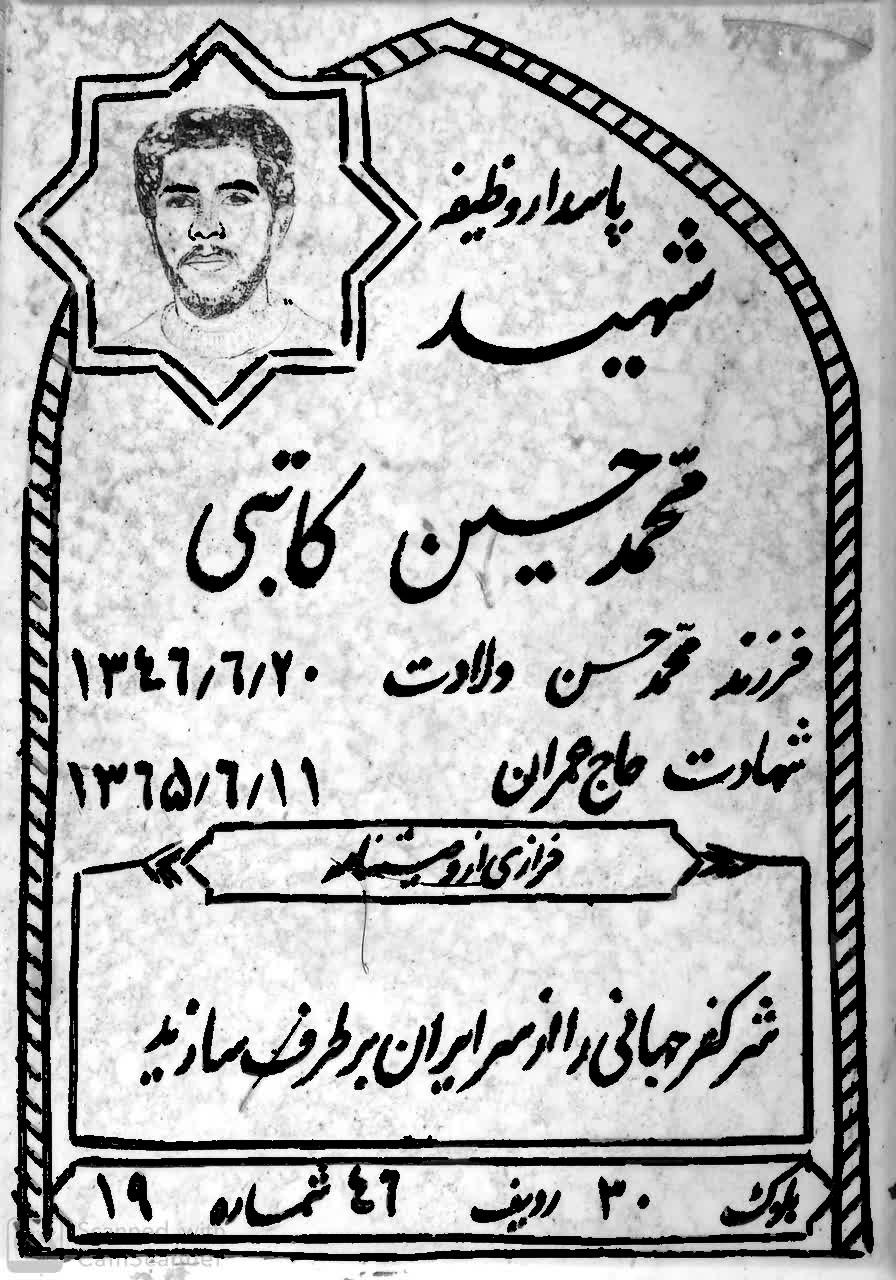 پاسدار وظیفه
شهید
محمّد حسین کاتبی
فرزند محمّد حسن ولادت ۱۳٤٦/٦/۲۰
شهادت حاج عمران ۱۳٦۵/٦/۱۱
فرازی از وصیتنامه
شر کفر جهانی را از سر ایران بر طرف سازید
بلوک ۳۰ ردیف ٤٦ شماره ۱۹
Scanned with
CamScanner